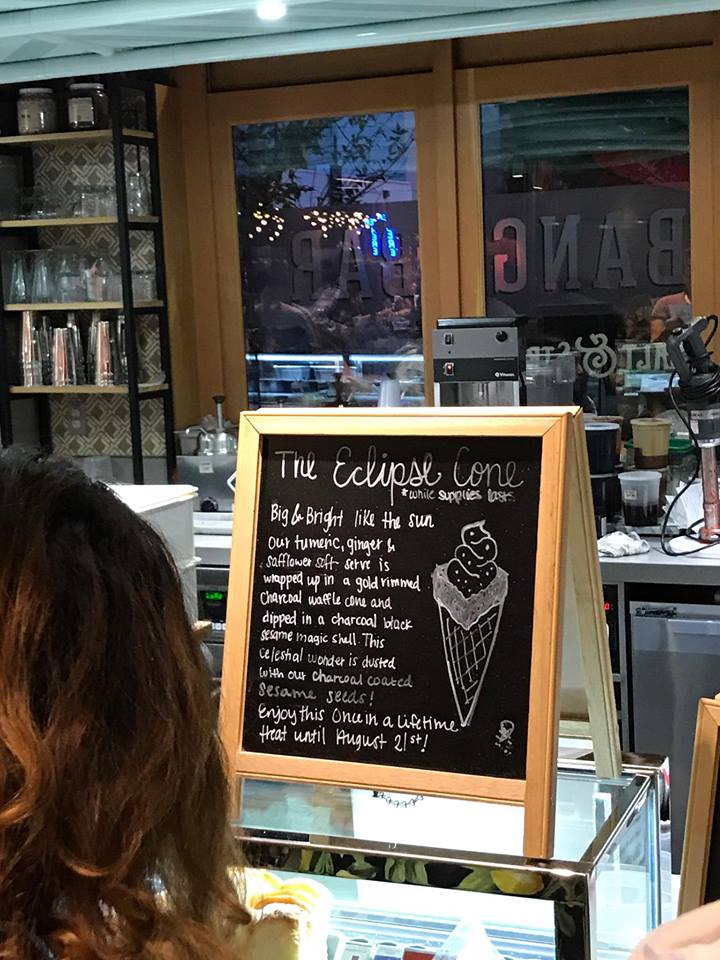 BANG
BAR
SALT &
The Eclipse Cone
*while supplies last*
Big & Bright like the sun
Our tumeric, ginger &
safflower soft serve is
wrapped up in a gold rimmed
charcoal waffle cone and
dipped in a charcoal black
sesame magic shell. This
celestial wonder is dusted
with our charcoal coated
sesame seeds!
Enjoy this Once in a Lifetime
treat until August 21st!